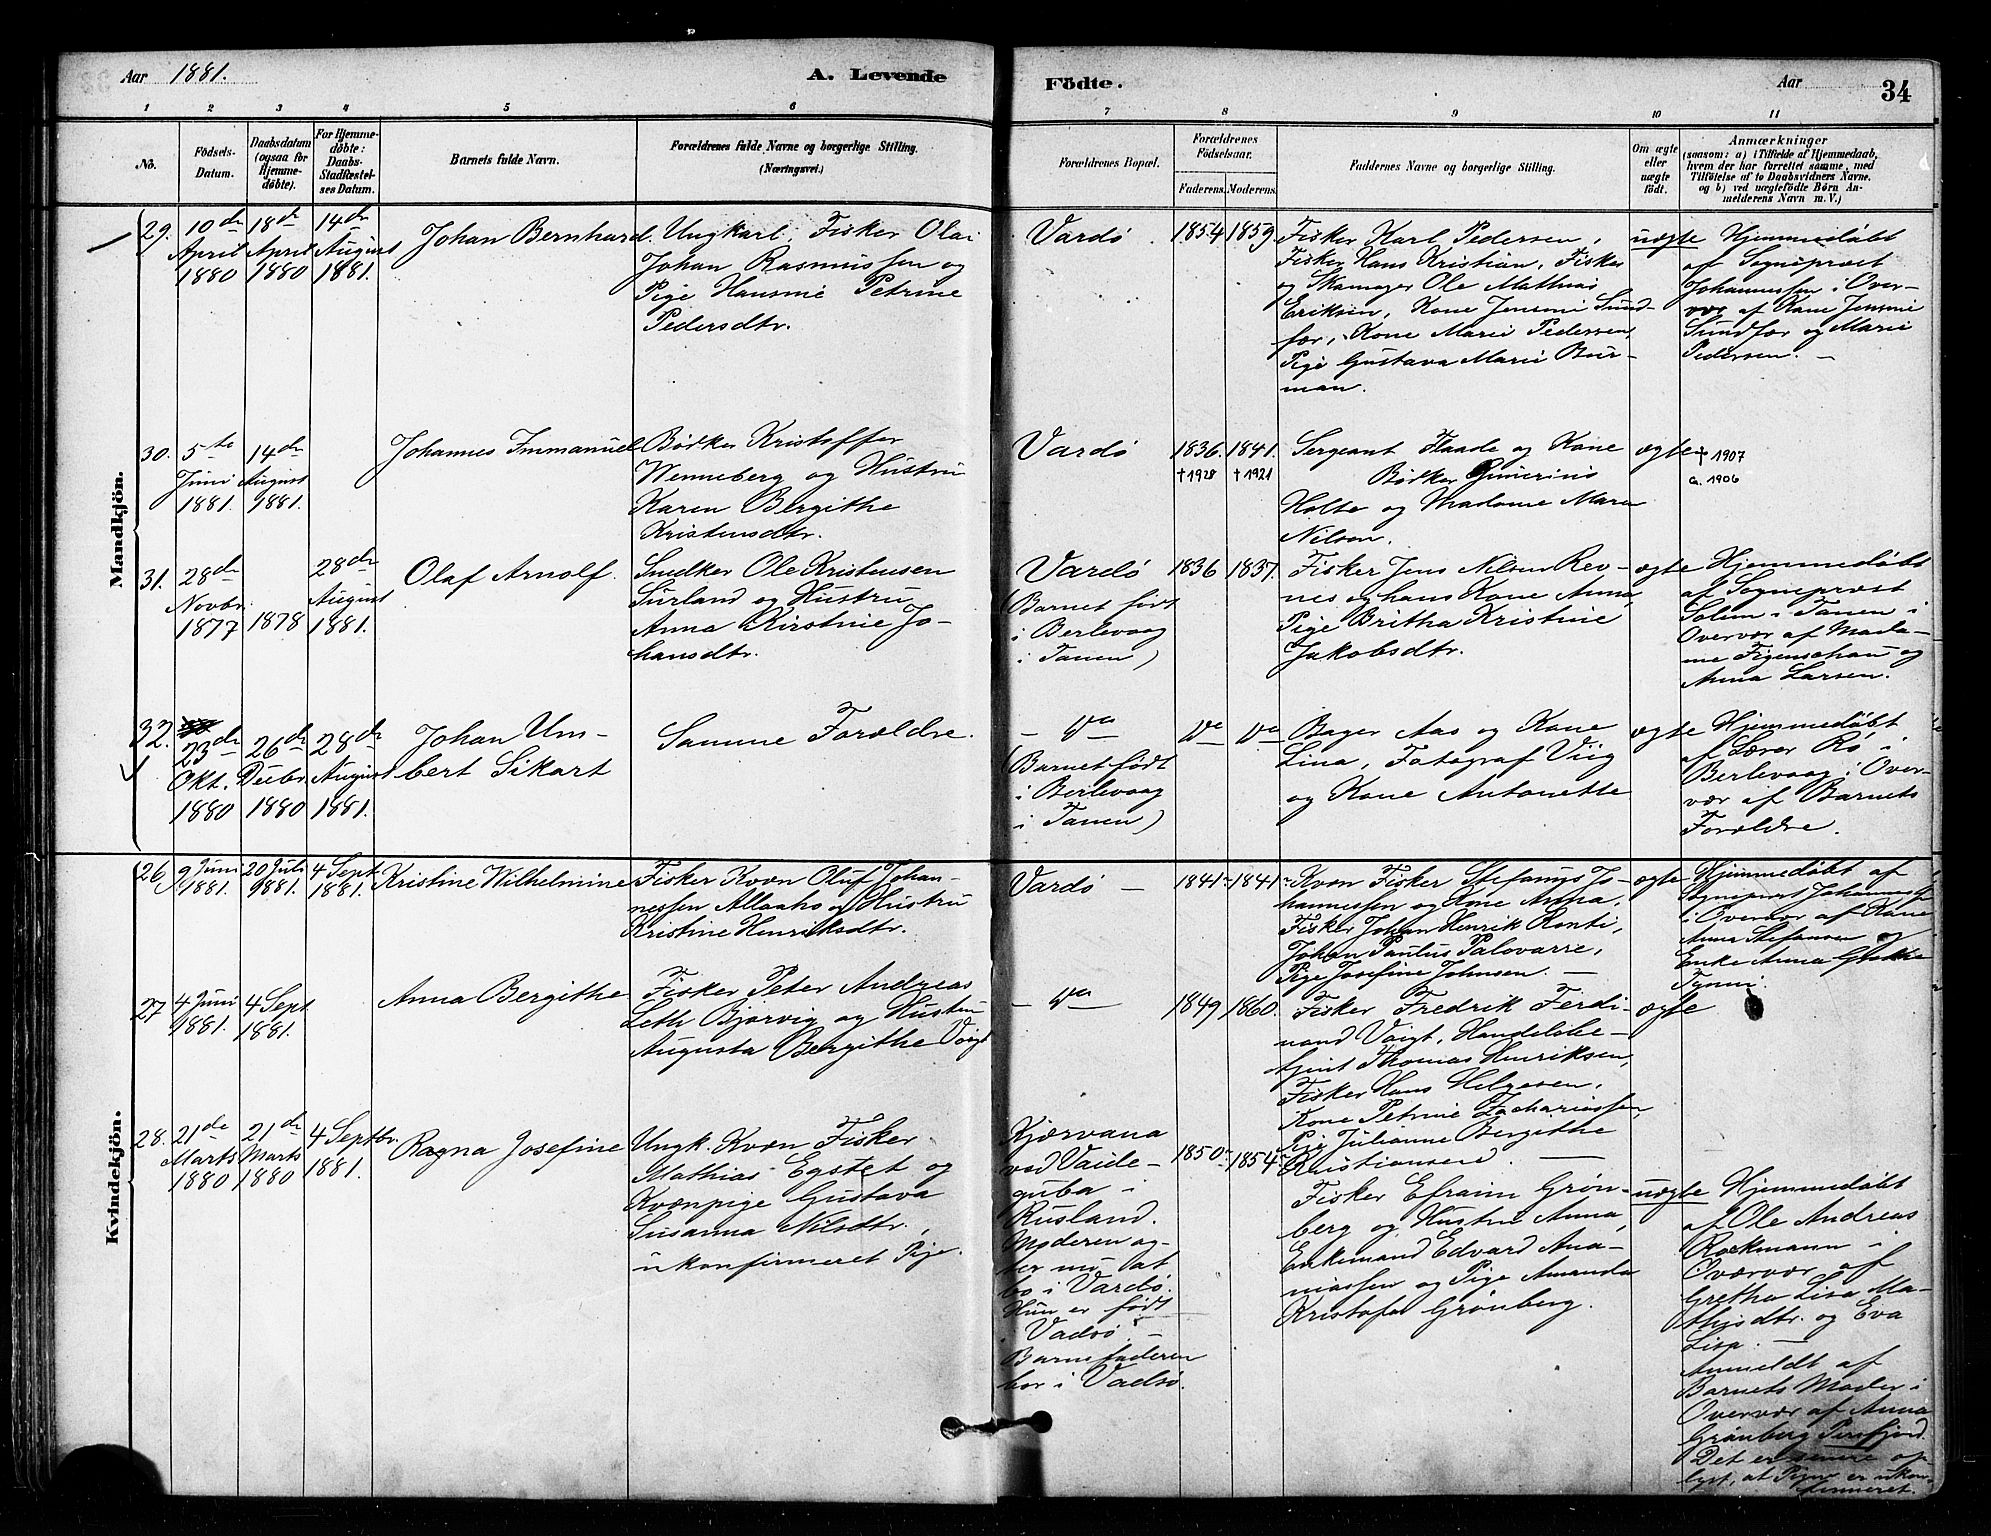 Aar 1881.
A. Levende
Födte.
Aar
34
1 2 3 4 5 6 7 8 9 10 11
No.
Födsels-
Datum.
Daabsdatum
(ogsaa for
Hjemme-
døbte).
For Hjemme-
døbte:
Daabs-
Stadfæstel-
ses Datum.
Barnets fulde Navn.
Forældrenes fulde Navne og borgerlige Stilling.
(Næringsvei.)
Forældrenes Bopæl.
Forældrenes
Födselsaar.
Faderens. Moderens.
Faddernes Navne og borgerlige Stilling.
Om ægte
eller
uægte
födt.
Anmærkninger
(saasom: a) i Tilfælde af Hjemmedaab,
hvem der har forrettet samme, med
Tilföielse af to Daabsvidners Navne,
og b) ved uægtefödte Börn An-
melderens Navn m. V.)
Mandkjön.
29.
10de
April
1880
18de
April
1880
14de
August
1881.
Johan Bernhard.
Ungkarl, Fisker Olai
Johan Rasmussen og
Pige Hansine Petrine
Pedersdtr.
Vardø.
1854
1859.
Fisker Karl Pedersen,
Fisker Hans Kristian, Fisker
og Skomager Ole Mathias
Eriksen, Kone Jensine Sund-
før, Kone Marie Pedersen,
Pige Gustava Marie Bur-
man.
uægte
Hjemmedøbt
af Sognepræst
Johannessen i Over-
vær af Kone Jensine
Sundfør og Marie
Pedersen. –
30.
5te
Juni
1881.
14de
August
1881.
Johannes Immanuel
Bødker Kristoffer
Wenneberg og Hustru
Karen Bergithe
Kristensdtr.
Vardø
1836.
† 1928
1841.
† 1921
Sergeant Flaade og Kone
Bødker Gunerius
Holte og Madame Maren
Nilsen.
ægte
† 1907
a. 1906
31.
28de
Novbr.
1877
1878
28de
August
1881.
Olaf Arnolf.
Snedker Ole Kristensen
Surland og Hustru
Anna Kirstine Jo-
hansdtr.
Vardø
(Barnet født
i Berlevaag
i Tanen)
1836
1837.
Fisker Jens Nilsen Rev-
nes og hans Kone Anna,
Pige Britha Kristine
Jakobsdtr.
ægte
Hjemmedøbt
af Sognepræst
Solem i Tanen i
Overvær af Mada-
me Figenschau og
Anna Larsen.
32.
23de
Okt.
1880
26de
Decbr.
1880
28de
August
1881.
Johan Um-
bert Sikart
Samme Forældre.
– Do
(Barnet født
i Berlevaag
i Tanen)
Do
Do
Bager Aas og Kone
Lina, Fotograf Viig
og Kone Antonette
ægte
Hjemmedøbt
af Lærer Rø i
Berlevaag i Over-
vær af Barnets
Forældre.
Kvindekjön.
26.
9 Juni
1881.
20 Juli
1881.
4 Sept.
1881.
Kristine Wilhelmine
Fisker Kvæn Oluf Johan-
nessen Allaaho og Hustru
Kristine Henriksdtr.
Vardø –
1841
1841
Kvæn Fisker Stefanus Jo-
hannessen og Kone Anna,
Fisker Johan Henrik Ronti,
Johan Paulus Palovarre,
Pige Josefine Johnsen. –
ægte
Hjemmedøbt af
Sognepræst Johannessen
i Overvær af Kone
Anna Stefansen og
Enke Anna
27
4 Juni
1881.
4 Sept
1881.
Anna Bergithe
Fisker Peter Andreas
Leth Bjørvig og Hustru
Augusta Bergithe Voigt
– Do –
1849
1860.
Fisker Fredrik Ferdi-
nand Voigt, Handelsbe-
tjent Thomas Henriksen,
Fisker Hans Helgesen,
Kone Petrine Zachariassen
Pige Julianne Bergithe
Kristiansen. –
ægte
28.
21de
Marts
1880
21de
Marts
1880
4 Septbr.
1881.
Ragna Josefine
Ungk. Kvæn Fisker
Mathias Egstet og
Kvænpige Gustava
Susanna Nilsdtr.,
ukonfirmeret Pige.
Kjærvana
ved Vaide-
guba i
Rusland.
Moderen ag-
ter nu at
bo i Vardø.
Hun er født
i Vadsø. –
Barnefaderen
bor i Vadsø.
1850
1854
Fisker Efraim Grøn-
berg og Hustru Anna,
Enkemand Edvard Ana-
niassen og Pige Amanda
Kristofa Grønberg.
uægte
Hjemmedøbt
af Ole Andreas
Rockmann i
Overvær af
Gretha Lisa Ma-
thisdtr. og Eva
Lisa. –
Anmeldt af
Barnets Moder i
Overvær af Anna
Grønberg Persfjord.
Det er senere op-
lyst, at Pigen er ukon-
firmeret.